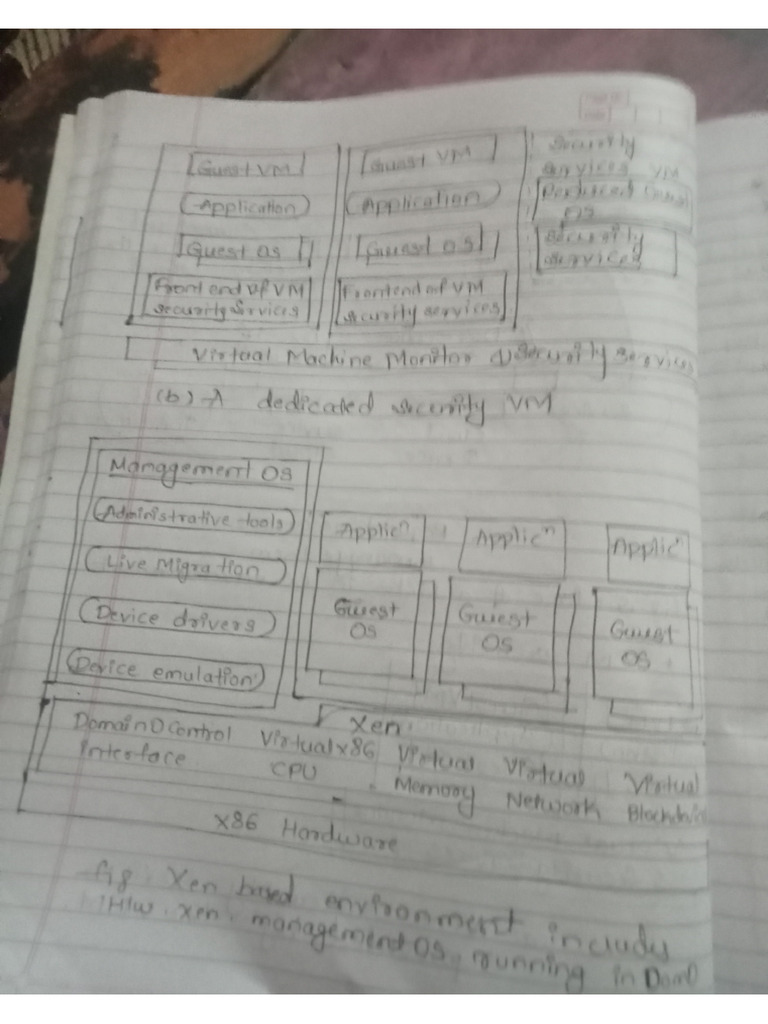 Guest VM
Application
Guest OS
Frontend of VM
security services
Guest VM
Application
Guest OS
Frontend of VM
security services
Security
services VM
Reduced Guest
OS
Security
services
Virtual Machine Monitor Security services
(b) A dedicated security VM
Management OS
Administrative tools
Live Migration
Device drivers
Device emulation
Applicⁿ
Applicⁿ
Applicⁿ
Guest
OS
Guest
OS
Guest
OS
Xen
Domain0 Control
Interface
Virtual x86
CPU
Virtual
Memory
Virtual
Network
Virtual
X86 Hardware
fig. Xen based environment includes
H/w. Xen. management OS, running in Dom0